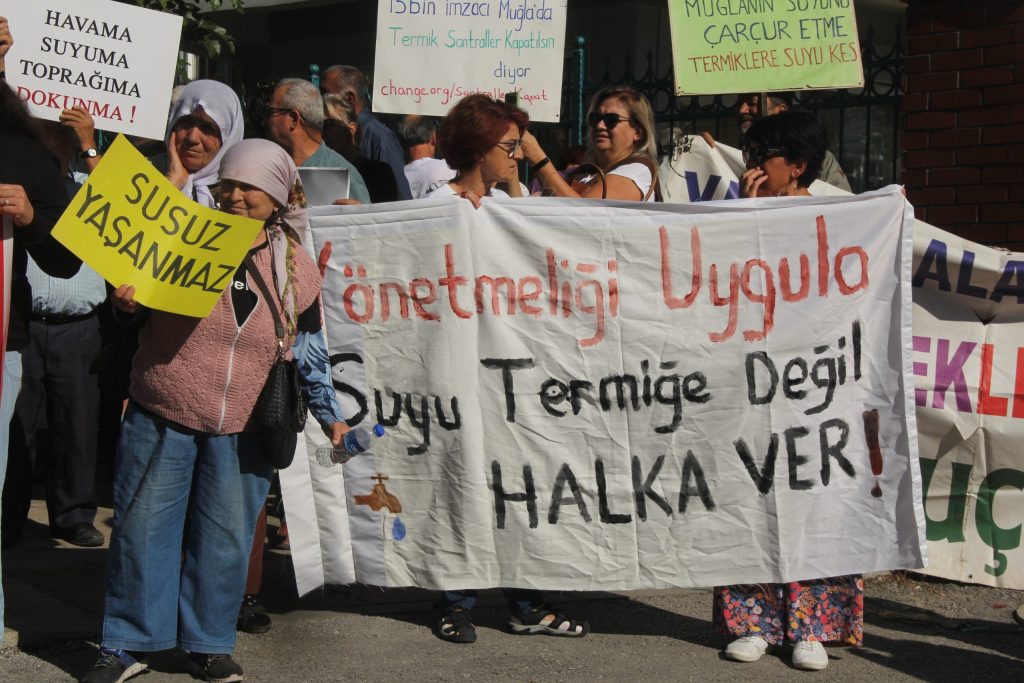 HAVAMA
SUYUMA
TOPRAĞIMA
DOKUNMA !
15bin imzacı Muğla'da
Termik Santraller Kapatılsın
diyor
change.org/santralleri Kapat
MUĞLANIN SUYUNU
ÇARÇUR ETME
TERMİKLERE SUYU KES
SUSUZ
YAŞANMAZ
Yönetmeliği Uygula
Suyu Termiğe Değil
HALKA VER!